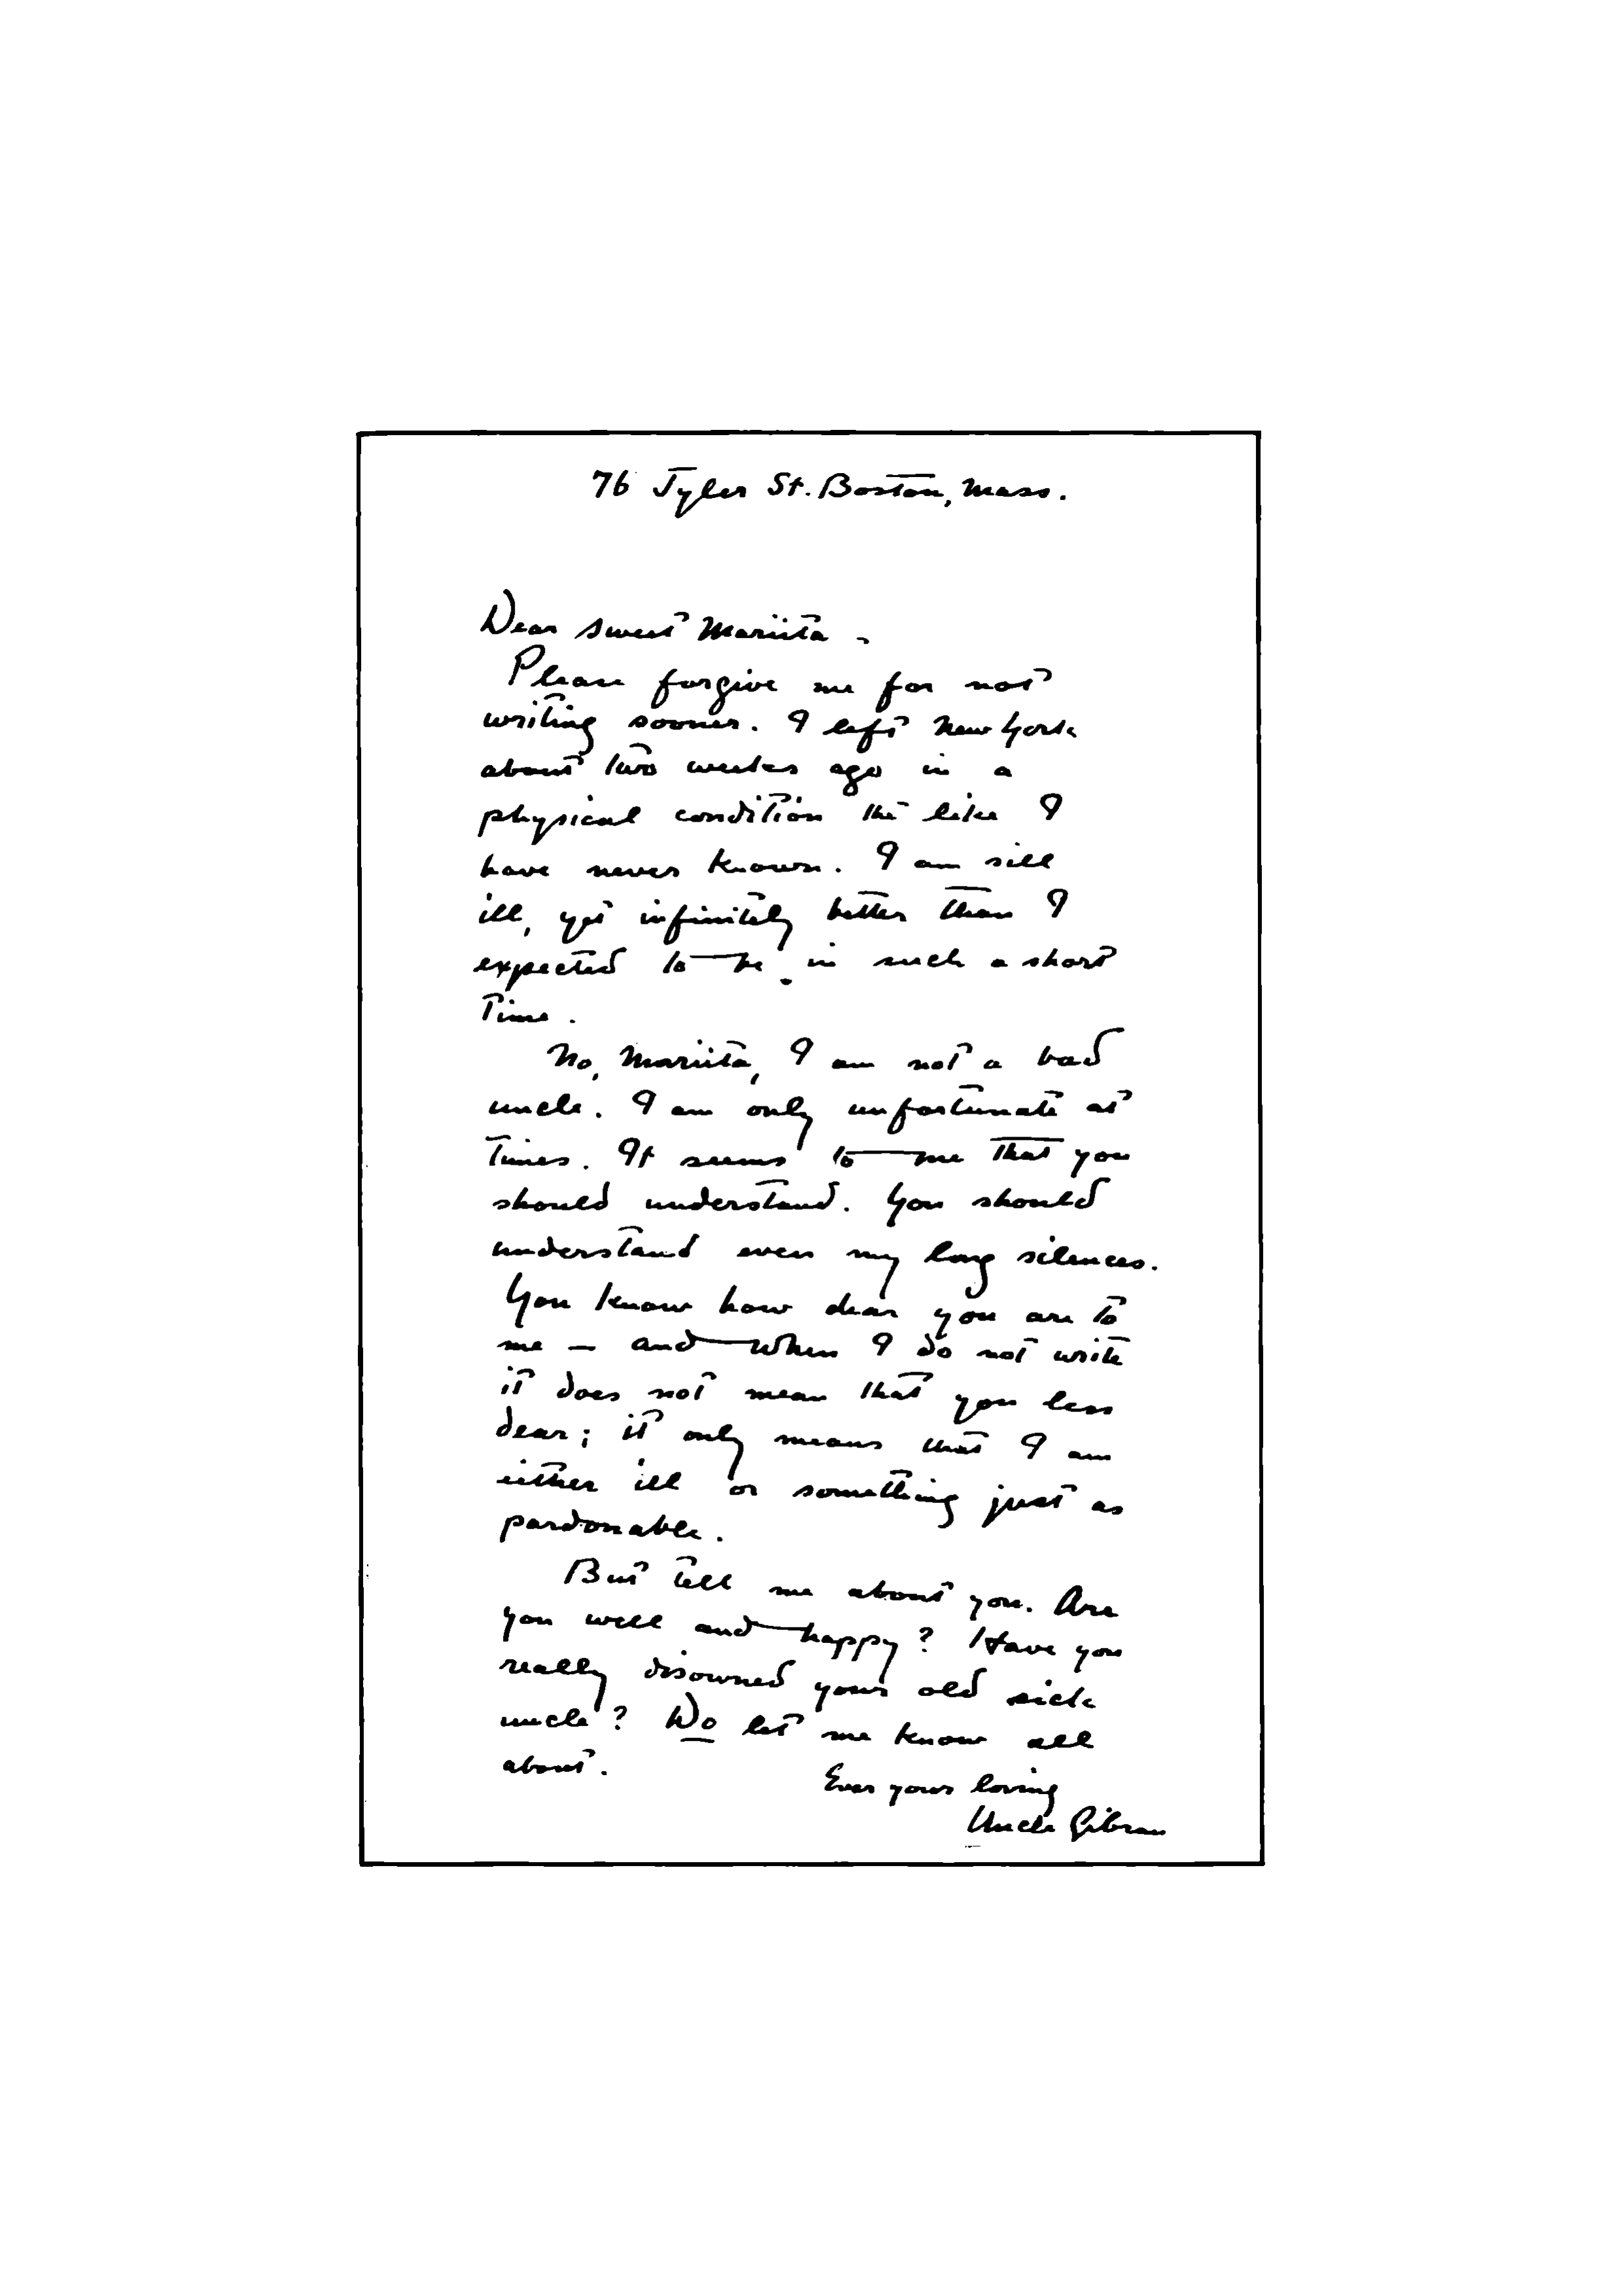 76 Tyler St. Boston, Mass.
Dear sweet Mariita -
Please forgive me for not
writing sooner. I left New York
about two weeks ago in a
physical condition the like I
have never known. I am sill
ill, yet infinitely better than I
expected to be in such a short
time.
No, Mariita, I am not a bad
uncle. I am only unfortunate at
times. It seems to me that you
should understand. You should
understand even my long silences.
You know how dear you are to
me - and when I do not write
it does not mean that you less
dear; it only means that I am
either ill or something just as
pardonable.
But tell me about you. Are
you well and happy? Have you
really disowned your old sick
uncle? Do let me know all
about.
Ever yours loving
Uncle Gibran